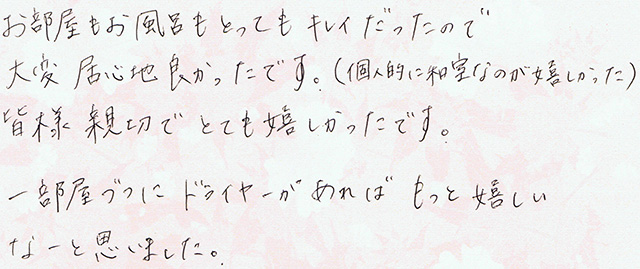 お部屋もお風呂もとってもキレイだったので
大変居心地良かったです。(個人的に和室なのが嬉しかった)
皆様親切でとても嬉しかったです。
一部屋づつにドライヤーがあればもっと嬉しい
なーと思いました。